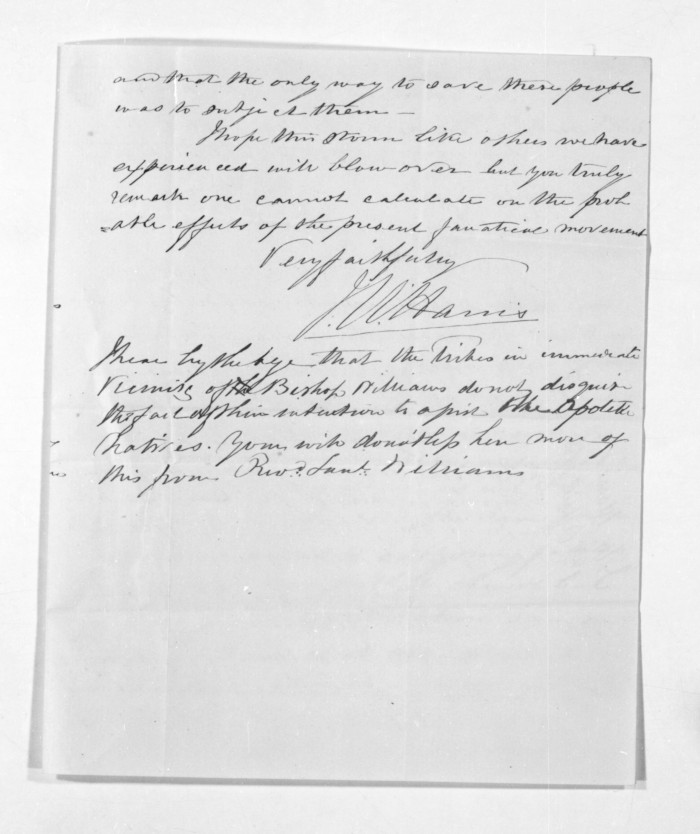 and that the only way to save these people
was to subject them —
I hope this storm like others we have
experienced will blow over but you truly
remark one cannot calculate on the prob
=able effects of the present fanatical movement
Very faithfully
J. W. Harris
I hear by the bye that the Tribes in immediate
Vicinity of the Bishop Williams do not disguise
the fact of their intention to assist the Opotiki
natives. You will doubtless hear more of
this from Revd. Saml. Williams